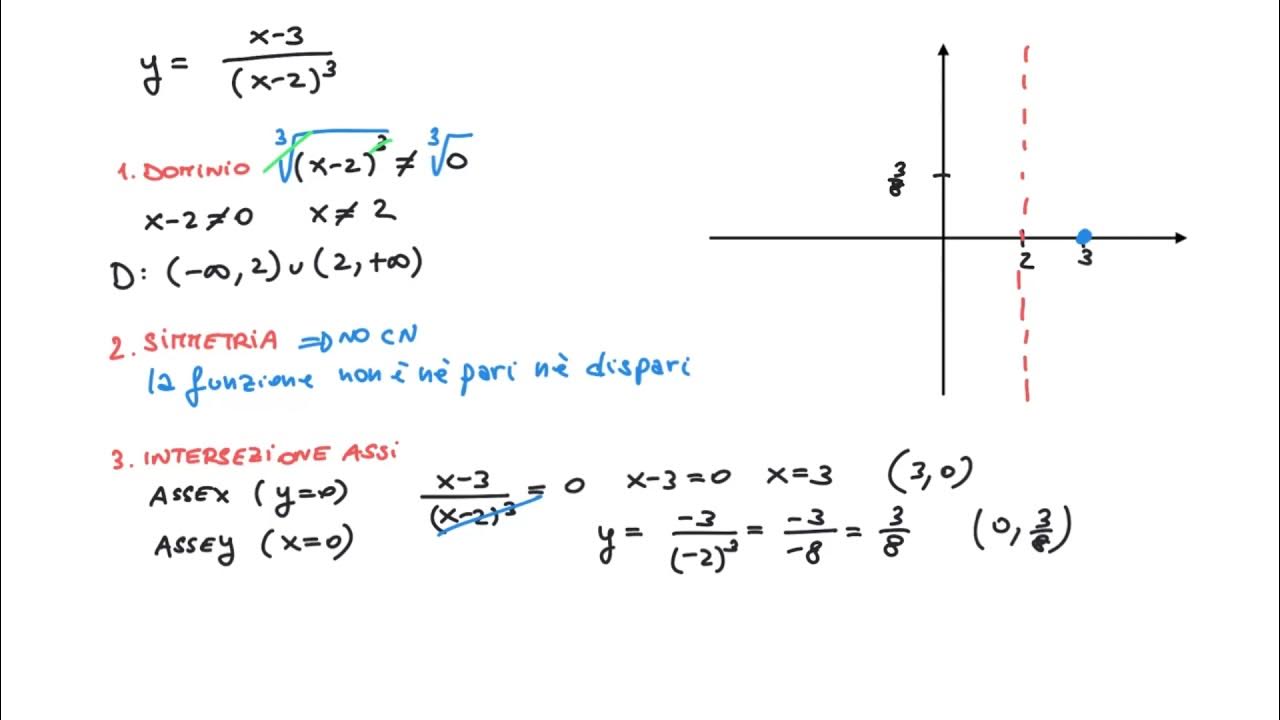 y = \frac{x-3}{(x-2)^3}
1. DOMINIO \sqrt[3]{(x-2)^3} ≠ \sqrt[3]{0}
x-2≠0 x≠2
D: (-∞, 2) ∪ (2, +∞)
2. SIMMETRIA ⇒ NO CN
la funzione non è nè pari nè dispari
3. INTERSEZIONE ASSI
ASSE X (y=0) \frac{x-3}{(x-2)^3} = 0 x-3=0 x=3 (3,0)
ASSE Y (x=0) y = \frac{-3}{(-2)^3} = \frac{-3}{-8} = \frac{3}{8} (0, \frac{3}{8})
\frac{3}{8}
2 3